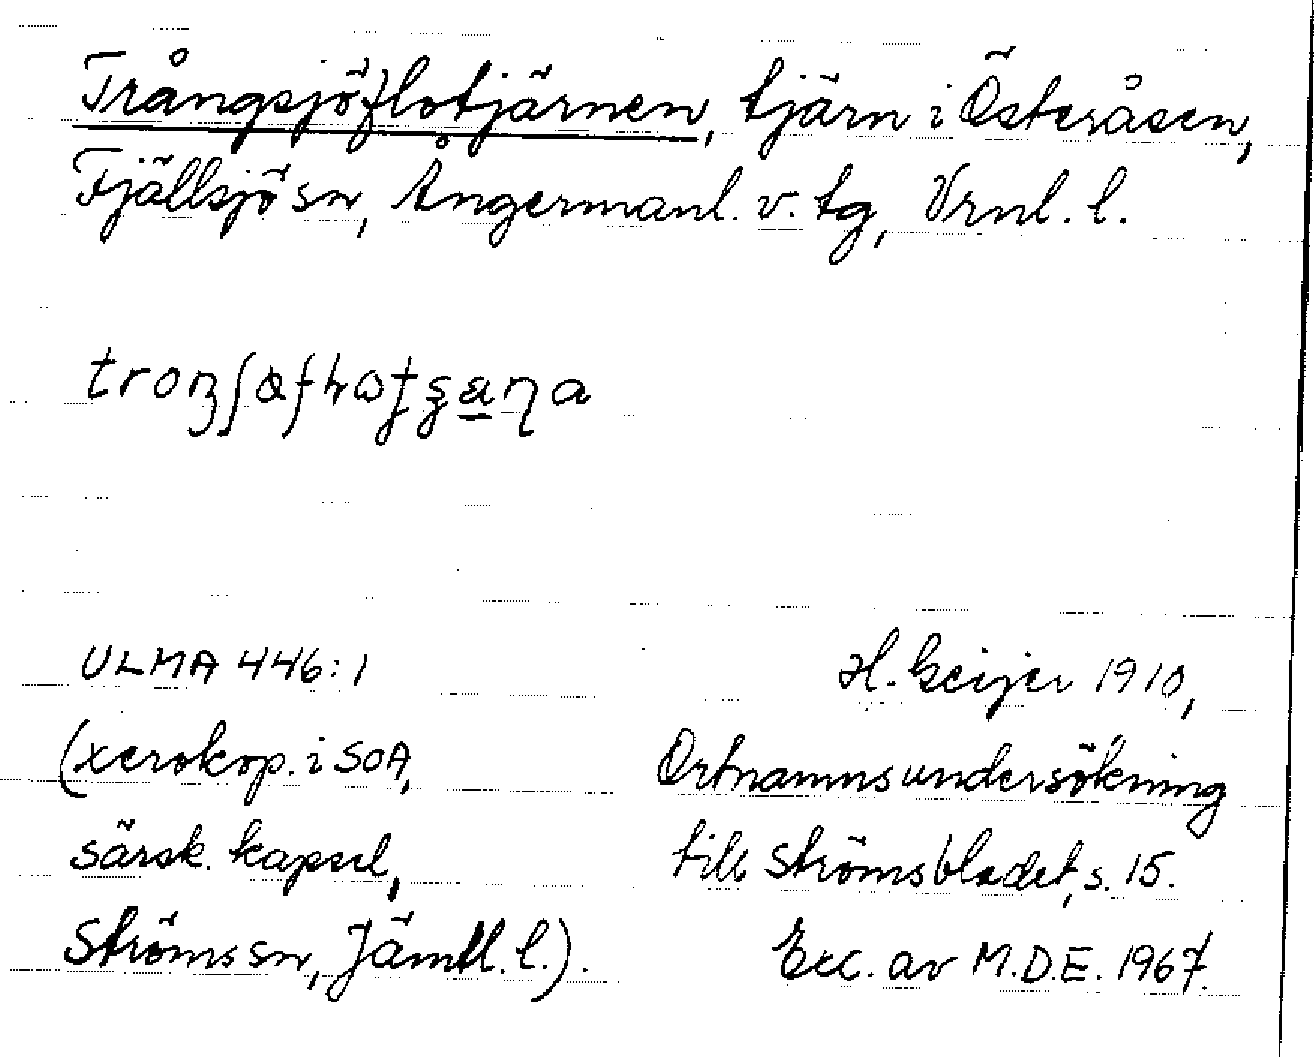 Trångsjöflotjärnen, tjärn i Österåsen,
Fjällsjö sn, Ångermanl. v. tg, Vrnl. l.
ULMA 446:1
H. Geijer 1910,
(xerokop. i SOA,
Ortnamnsundersökning
särsk. kapsel,
till Strömsbladet, s. 15.
Ströms sn, Jämtl. l.).
Exc. av M.D.E. 1967.